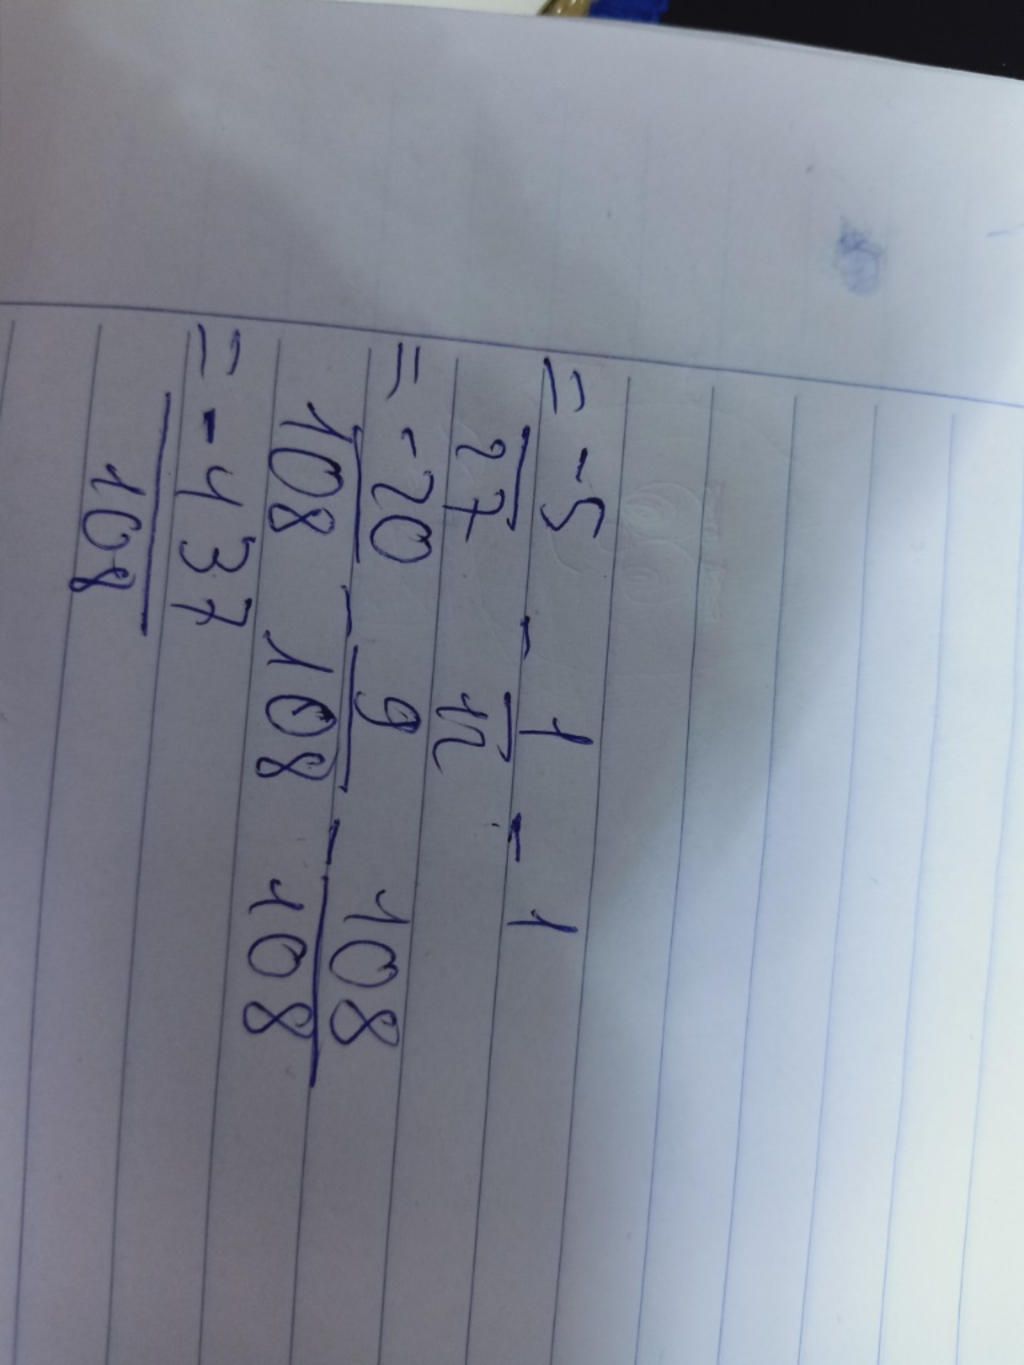 = -5/27 - 1/12 - 1
= -20/108 - 9/108 - 108/108
= -137/108